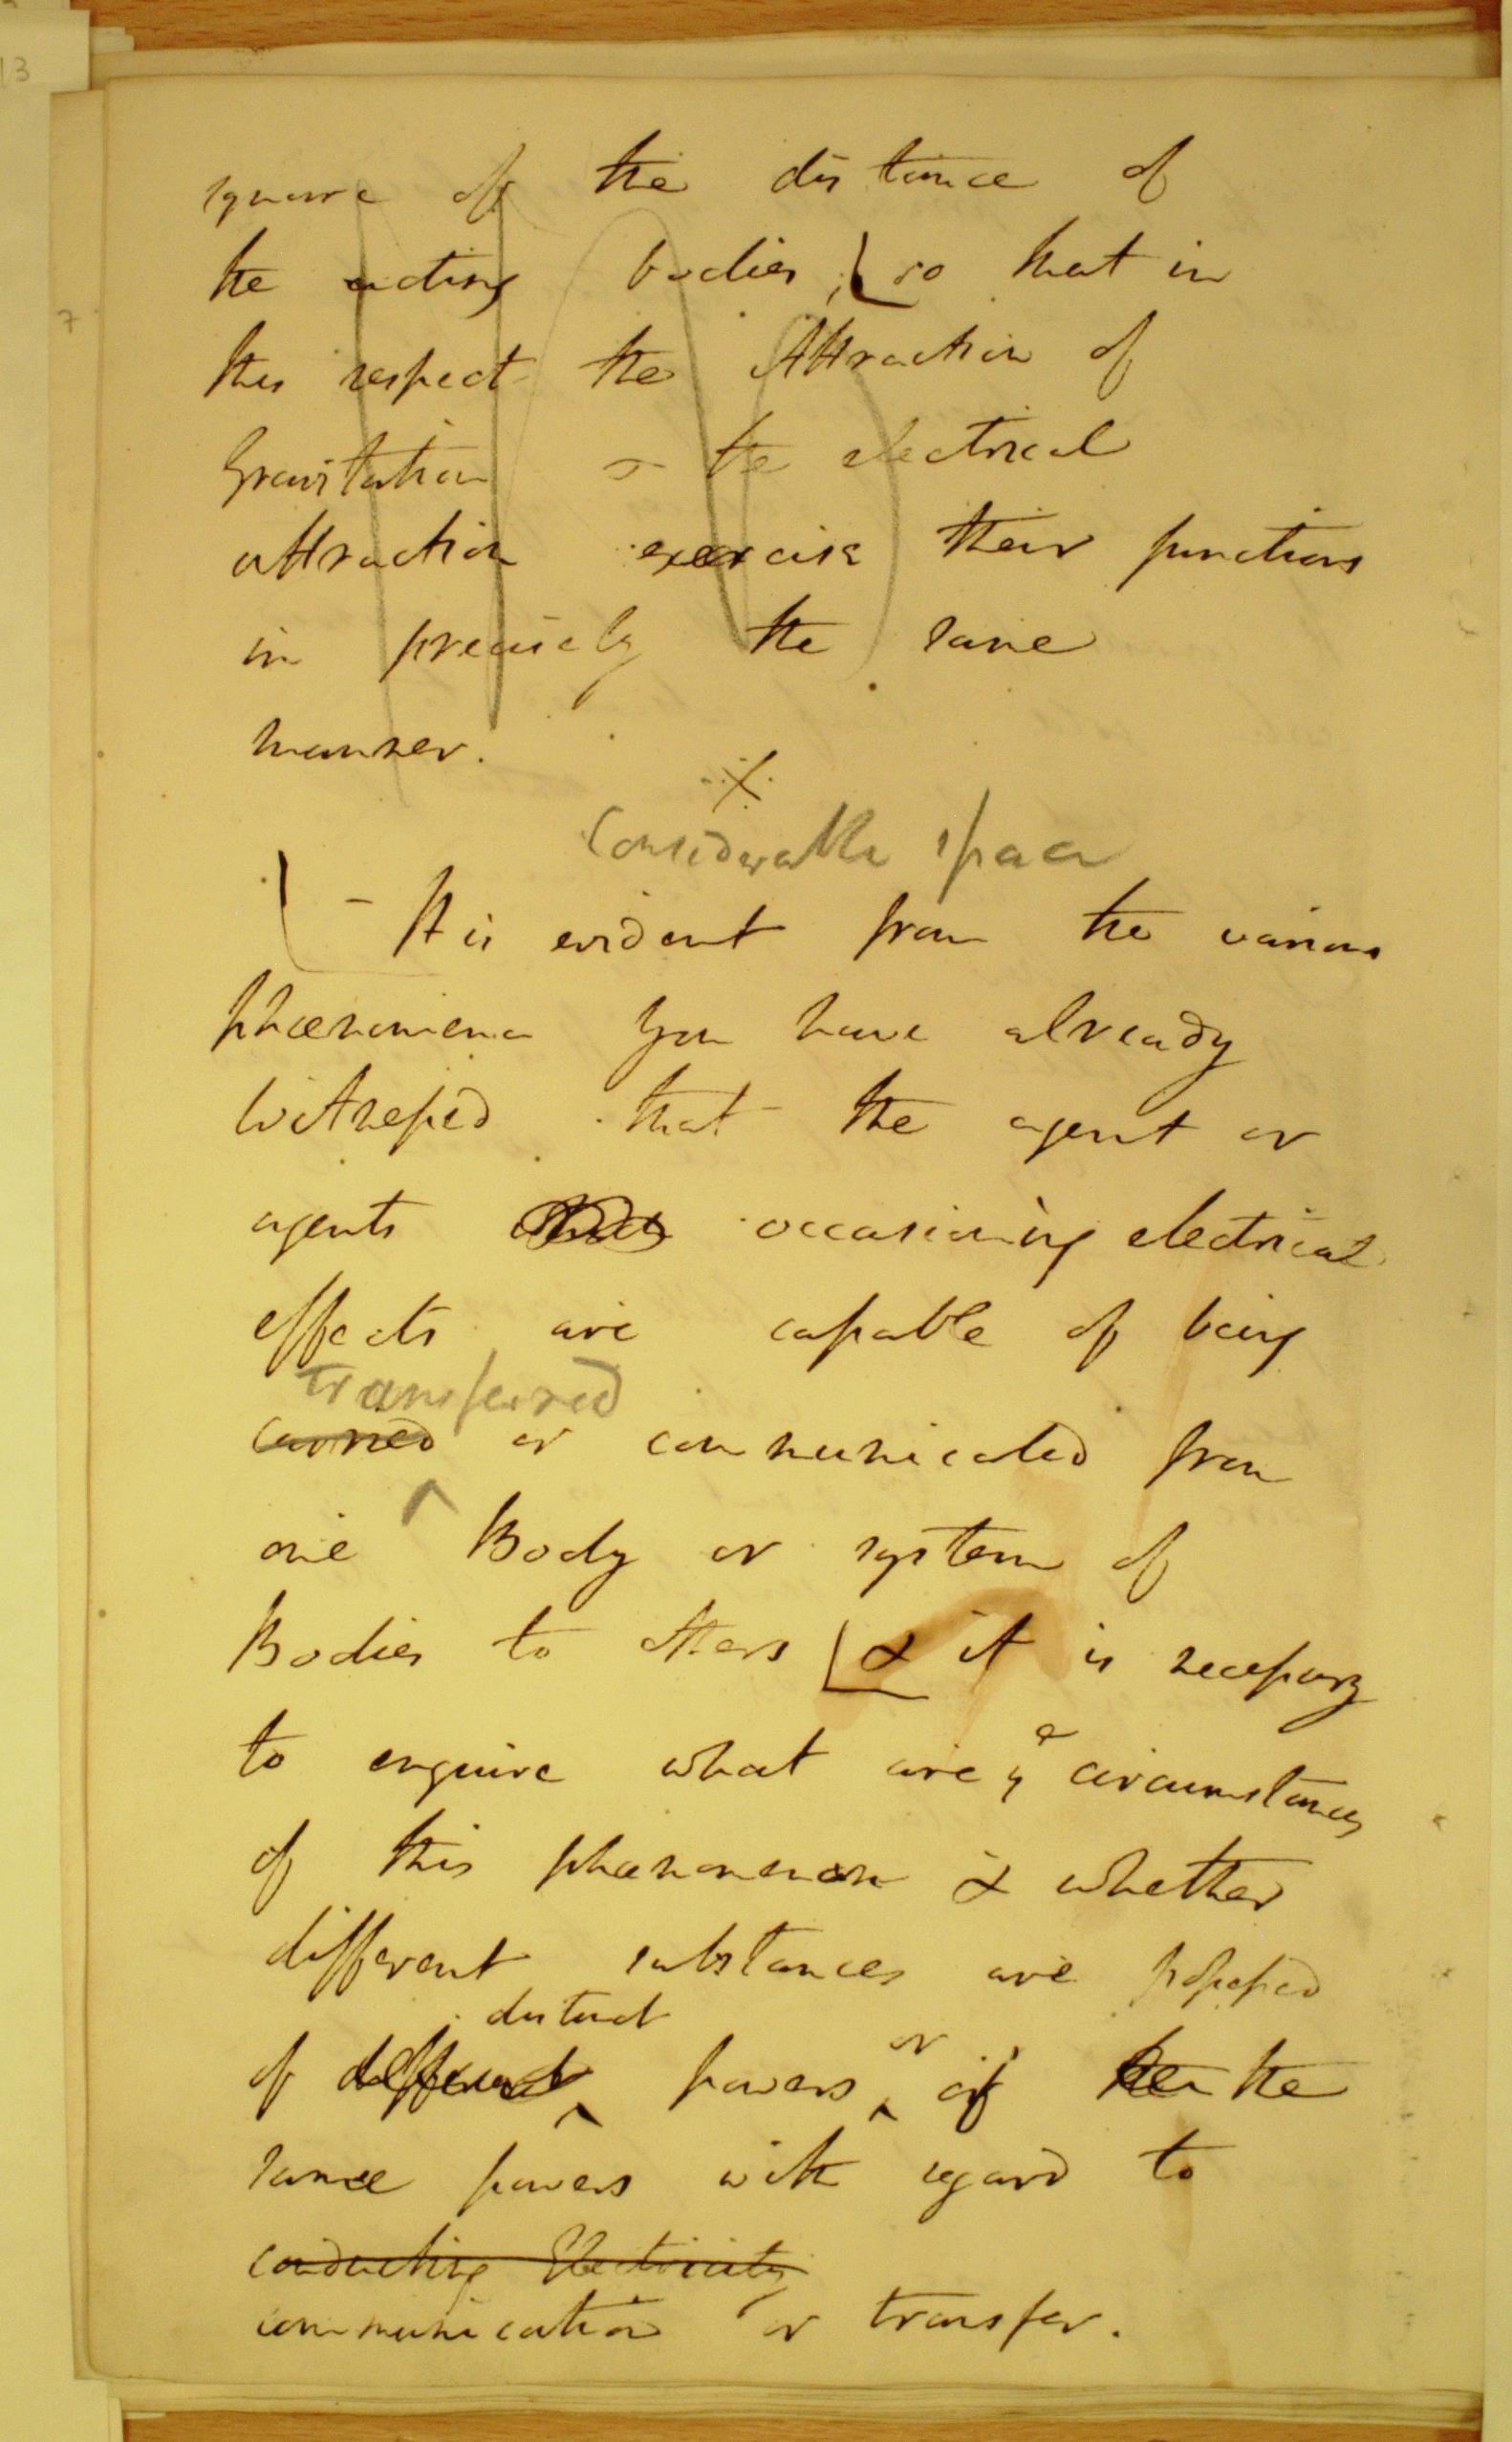 square of the distance of
the acting bodies, so that in
this respect the Attraction of
Gravitation & the electrical
attraction exercise their functions
in precisely the same
manner.
Considerable space
- It is evident from the various
phænomena you have already
witnessed that the agent or
agents occasioning electrical
effects are capable of being
transferred
carried or communicated from
one Body or system of
Bodies to others & it is necessary
to enquire what are ye circumstances
of this phænomenon & whether
different substances are possessed
distinct
of different powers or of the
same powers with regard to
conducting Electricity
communication or transfer.